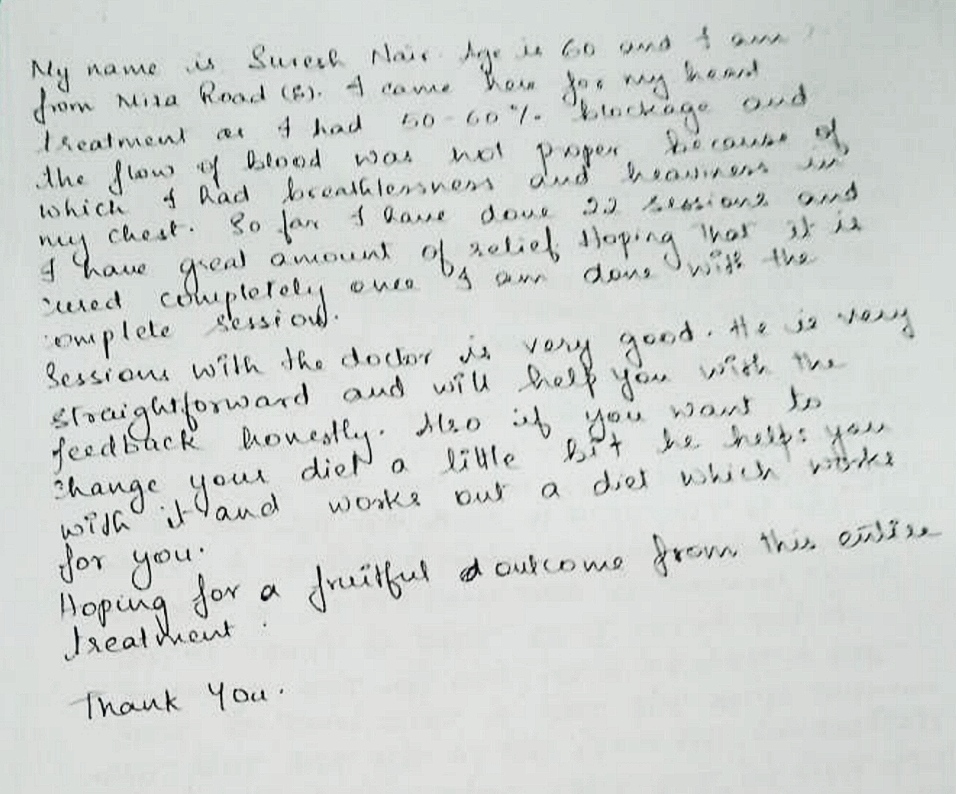 My name is Suresh Nair Age is 60 and I am
from Mira Road (E). I came here for my heart
treatment as I had 50-60% blockage and
the flow of blood was not proper because of
which I had breathlessness and heaviness in
my chest. So far I have done 22 sessions and
I have great amount of relief. Hoping that it is
cured completely once I am done with the
complete session.
Sessions with the doctor is very good. He is very
straightforward and will help you with the
feedback honestly. Also if you want to
change your diet a little bit he helps you
with it and works out a diet which works
for you.
Hoping for a fruitful outcome from this entire
treatment.
Thank You.